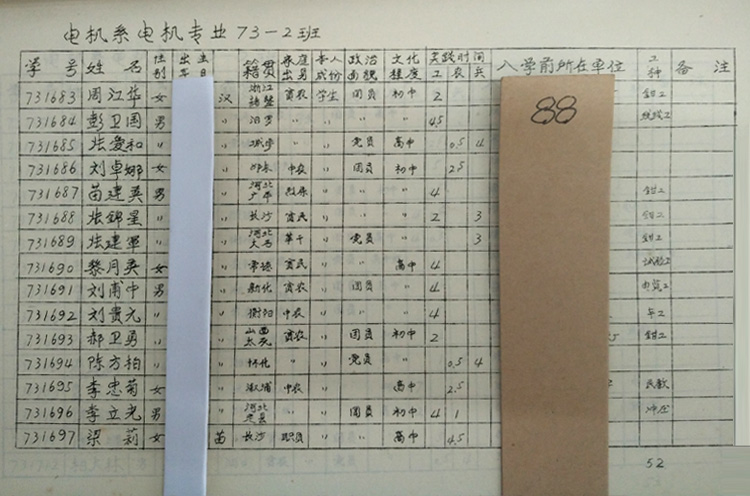 电机系电机专业73-2班
学号 姓名 性别 出生年日 籍贯 家庭出身 本人成份 政治面貌 文化程度 实践时间 工 农 兵 入学前所在单位 工种 备注
731683 周江华 女 汉 浙江诸暨 贫农 学生 团员 初中 2 钳工
731684 彭卫国 男 〃 汨罗 〃 〃 〃 〃 4.5
731685 张爱和 〃 〃 城步 〃 〃 党员 高中 0.5 4
731686 刘卓娜 女 〃 邵东 中农 〃 团员 初中 2.5
731687 苗建英 男 〃 河北广平 〃 〃 〃 4 钳工
731688 张锦星 〃 〃 长沙 贫民 〃 〃 〃 2 3 钳工
731689 张建军 〃 〃 河北大名 革干 〃 党员 〃 3 钳工
731690 黎月英 女 〃 常德 贫民 〃 〃 高中 4 试验工
731691 刘甫中 男 〃 新化 贫农 〃 团员 〃 4 电气工
731692 刘贵元 〃 〃 衡阳 中农 〃 〃 〃 4 车工
731693 郝卫勇 〃 〃 山西 贫农 〃 团员 初中 2 钳工
731694 陈方柏 〃 〃 怀化 〃 〃 党员 〃 0.5 4
731695 李忠菊 女 〃 溆浦 中农 〃 高中 2.5 民教
731696 李立光 男 〃 河北定县 〃 团员 初中 4 1 冲压
731697 梁莉 女 苗 长沙 职员 〃 〃 高中 4.5
52
88